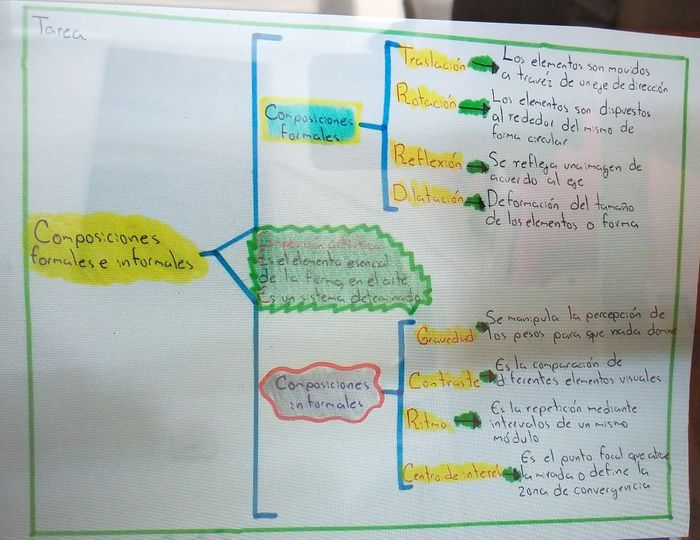 Tarea
Composiciones
formales e informales
Composiciones
formales
Traslación
Los elementos son movidos
a travéz de un eje de dirección
Rotación
Los elementos son dispuestos
al rededor del mismo de
forma circular
Reflexión
Se refleja una imagen de
acuerdo al eje
Dilatación
Deformación del tamaño
de los elementos o forma
Composición artística
Es el elemento esencial
de la forma, en el arte
Es un sistema determinado
Composiciones
informales
Gravedad
Se manipula la percepción de
los pesos para que nada domine
Contraste
Es la comparación de
diferentes elementos visuales
Ritmo
Es la repetición mediante
intervalos de un mismo
módulo
Centro de interés
Es el punto focal que atrae
la mirada o define la
zona de convergencia